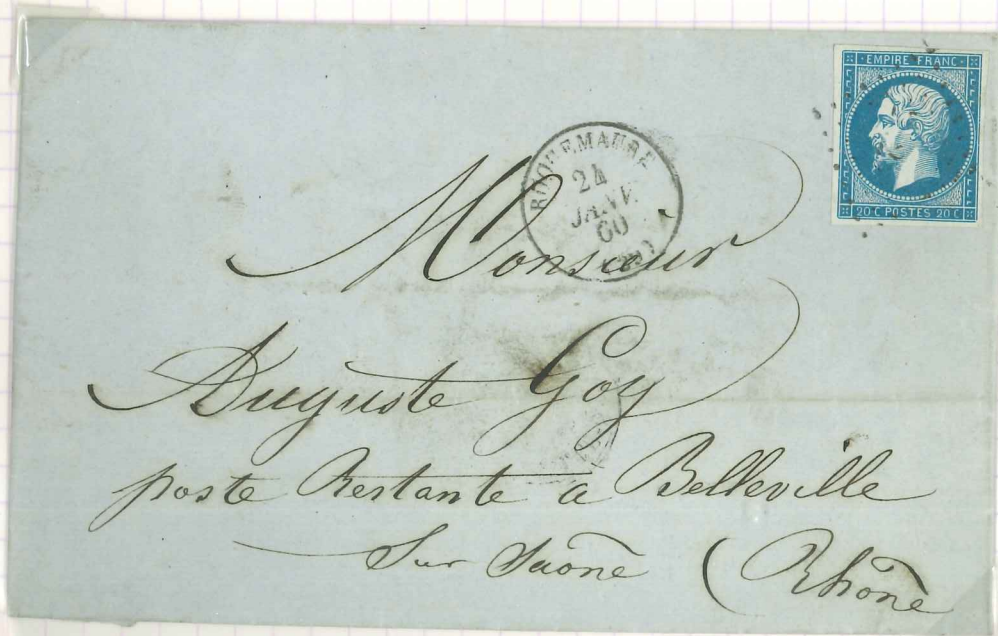 EMPIRE FRANC
20 C POSTES 20 C
ROQUEMAURE
24
JANV.
60
Monsieur
Auguste Goy
poste Restante a Belleville
Sur Saône (Rhône